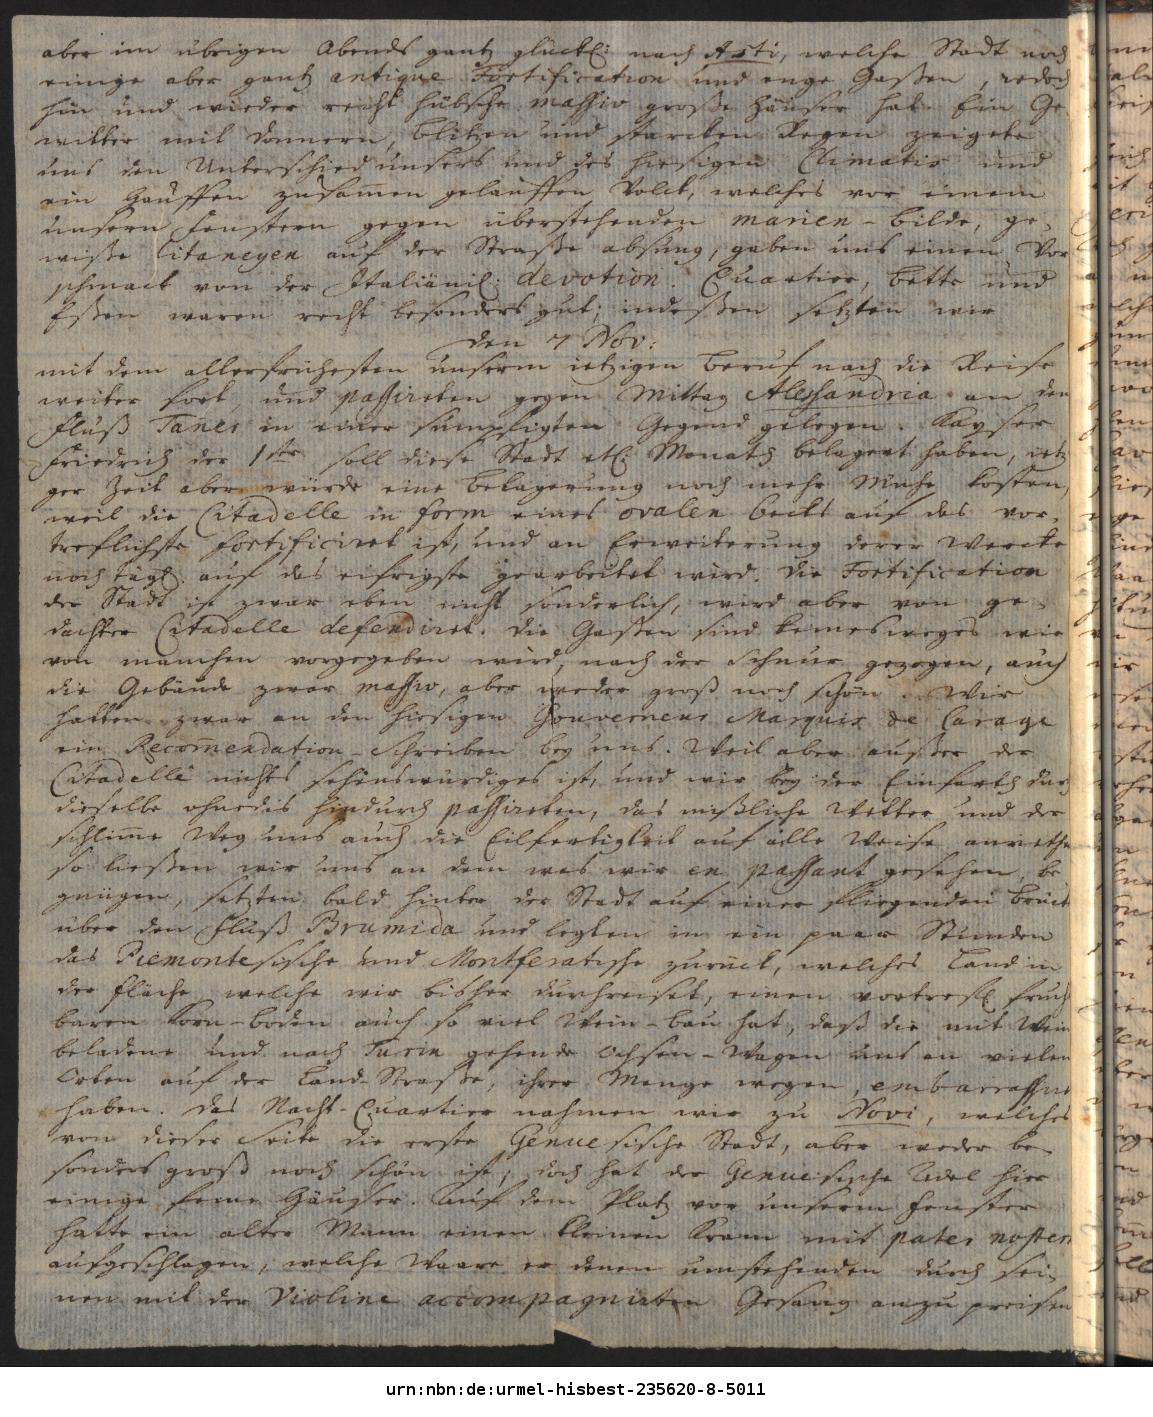 aber im übrigen Abends gantz glückl: nach Asti, welche Stadt noch
einige aber gantz antique Fortification und enge Gaßen, jedoch
hin und wieder recht hübsche massiv große Häuser hat. Ein Ge
witter mit Donnern, Blitzen und starcken Regen zeigete
uns den Unterschied unsers und des hiesigen Climatis und
ein Hauffen zusam̄en gelauffen Volck, welches vor einem
unsern Fenstern gegen überstehenden Marien-Bilde, ge-
wiße Litaneyen auf der Straße absung, gaben uns einen Vor
schmack von der Italiänil: devotion. Quartier, Bette und
Eßen waren recht besonders gut; indeßen setzten wir
den 7 Nov:
mit dem allerfrühesten unserm ietzigen Beruf nach die Reise
weiter fort, und passireten gegen Mittag Alessandria an den
Fluß Taner in einer sumpfigten Gegend gelegen. Kayser
Friedrich der 1ste soll diese Stadt etl. Monath belagert haben, ietzi
ger Zeit aber würde eine Belagerung noch mehr Mühe kosten,
weil die Citadelle in form eines ovalen Secks auf das vor-
treflichste fortificiret ist, und an Erweiterung derer Wercke
noch tägl. auf das eifrigste gearbeitet wird. Die Fortification
der Stadt ist zwar eben nicht sonderlich, wird aber von ge-
dachter Citadelle defendiret. Die Gaßen sind keinesweges wie
von manchen vorgegeben wird, nach der Schnur gezogen, auch
die Gebäude zwar massiv, aber weder groß noch schön. Wir
hatten zwar an den hiesigen Gouverneur Marquis de Carage
ein Recom̄endation-Schreiben bey uns. Weil aber außer der
Citadelle nichts sehenswürdiges ist, und wir bey der Einfarth durch
dieselbe ohnedis hindurch passireten, das mißliche Wetter und der
schlim̄e Weg uns auch die Eilfertigkeit auf alle Weise anriethe
so ließen wir uns an dem was wir en passant gesehen, be
gnügen, setzten bald hinter der Stadt auf einer fliegenden Brück
über den Fluß Brumida und legten in ein paar Stunden
das Piemontesische und Montferatische zurück, welches Land in
der Fläche, welche wir bisher durchreiset, einen vortrefl. frucht
baren Korn-boden auch so viel Wein-bau hat, daß die mit Wein
beladene und nach Turin gehende Ochsen-Wagen uns an vielen
Orten auf der Land-Straße, ihrer Menge wegen, embarassiret
haben. Das Nacht-Quartier nahmen wir zu Novi, welches
von dieser Seite die erste Genuesische Stadt, aber weder be-
sonders groß noch schön ist; doch hat der Genuesische Adel hier
einige feine Häusser. Auf dem Platz vor unserm Fenster
hatte ein alter Mann einen kleinen Kram mit pater noster
aufgeschlagen, welche Waare er denen umstehenden durch sei-
nen mit der Violine accompagnirten Gesang anzu preisen
urn:nbn:de:urmel-hisbest-235620-8-5011